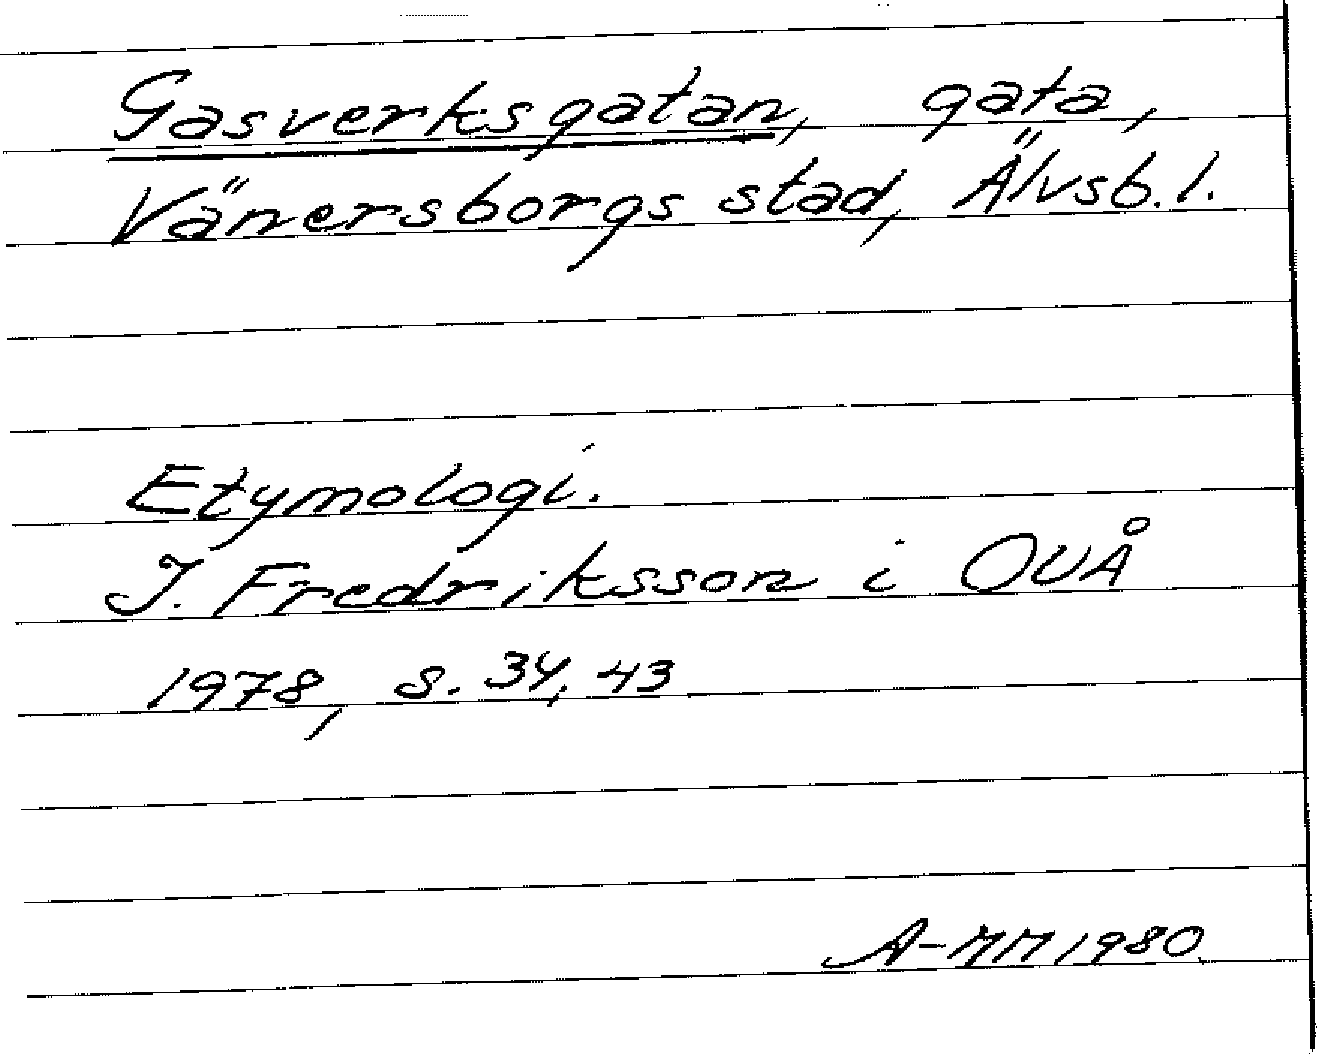 Gasverksgatan, gata,
Vänersborgs stad, Älvsb. l.
Etymologi.
I. Fredriksson i OUÅ
1978, s. 34, 43
A-MM 1980